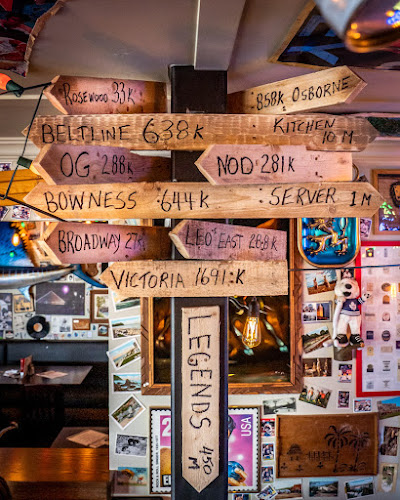 ROSEWOOD 33K
858K OSBORNE
BELTLINE 638K
KITCHEN 10M
OG 288K
NOD 281K
BOWNESS 644K
SERVER 1M
BROADWAY
LEO EAST 268K
VICTORIA 1691K
LEGENDS 450M
USA